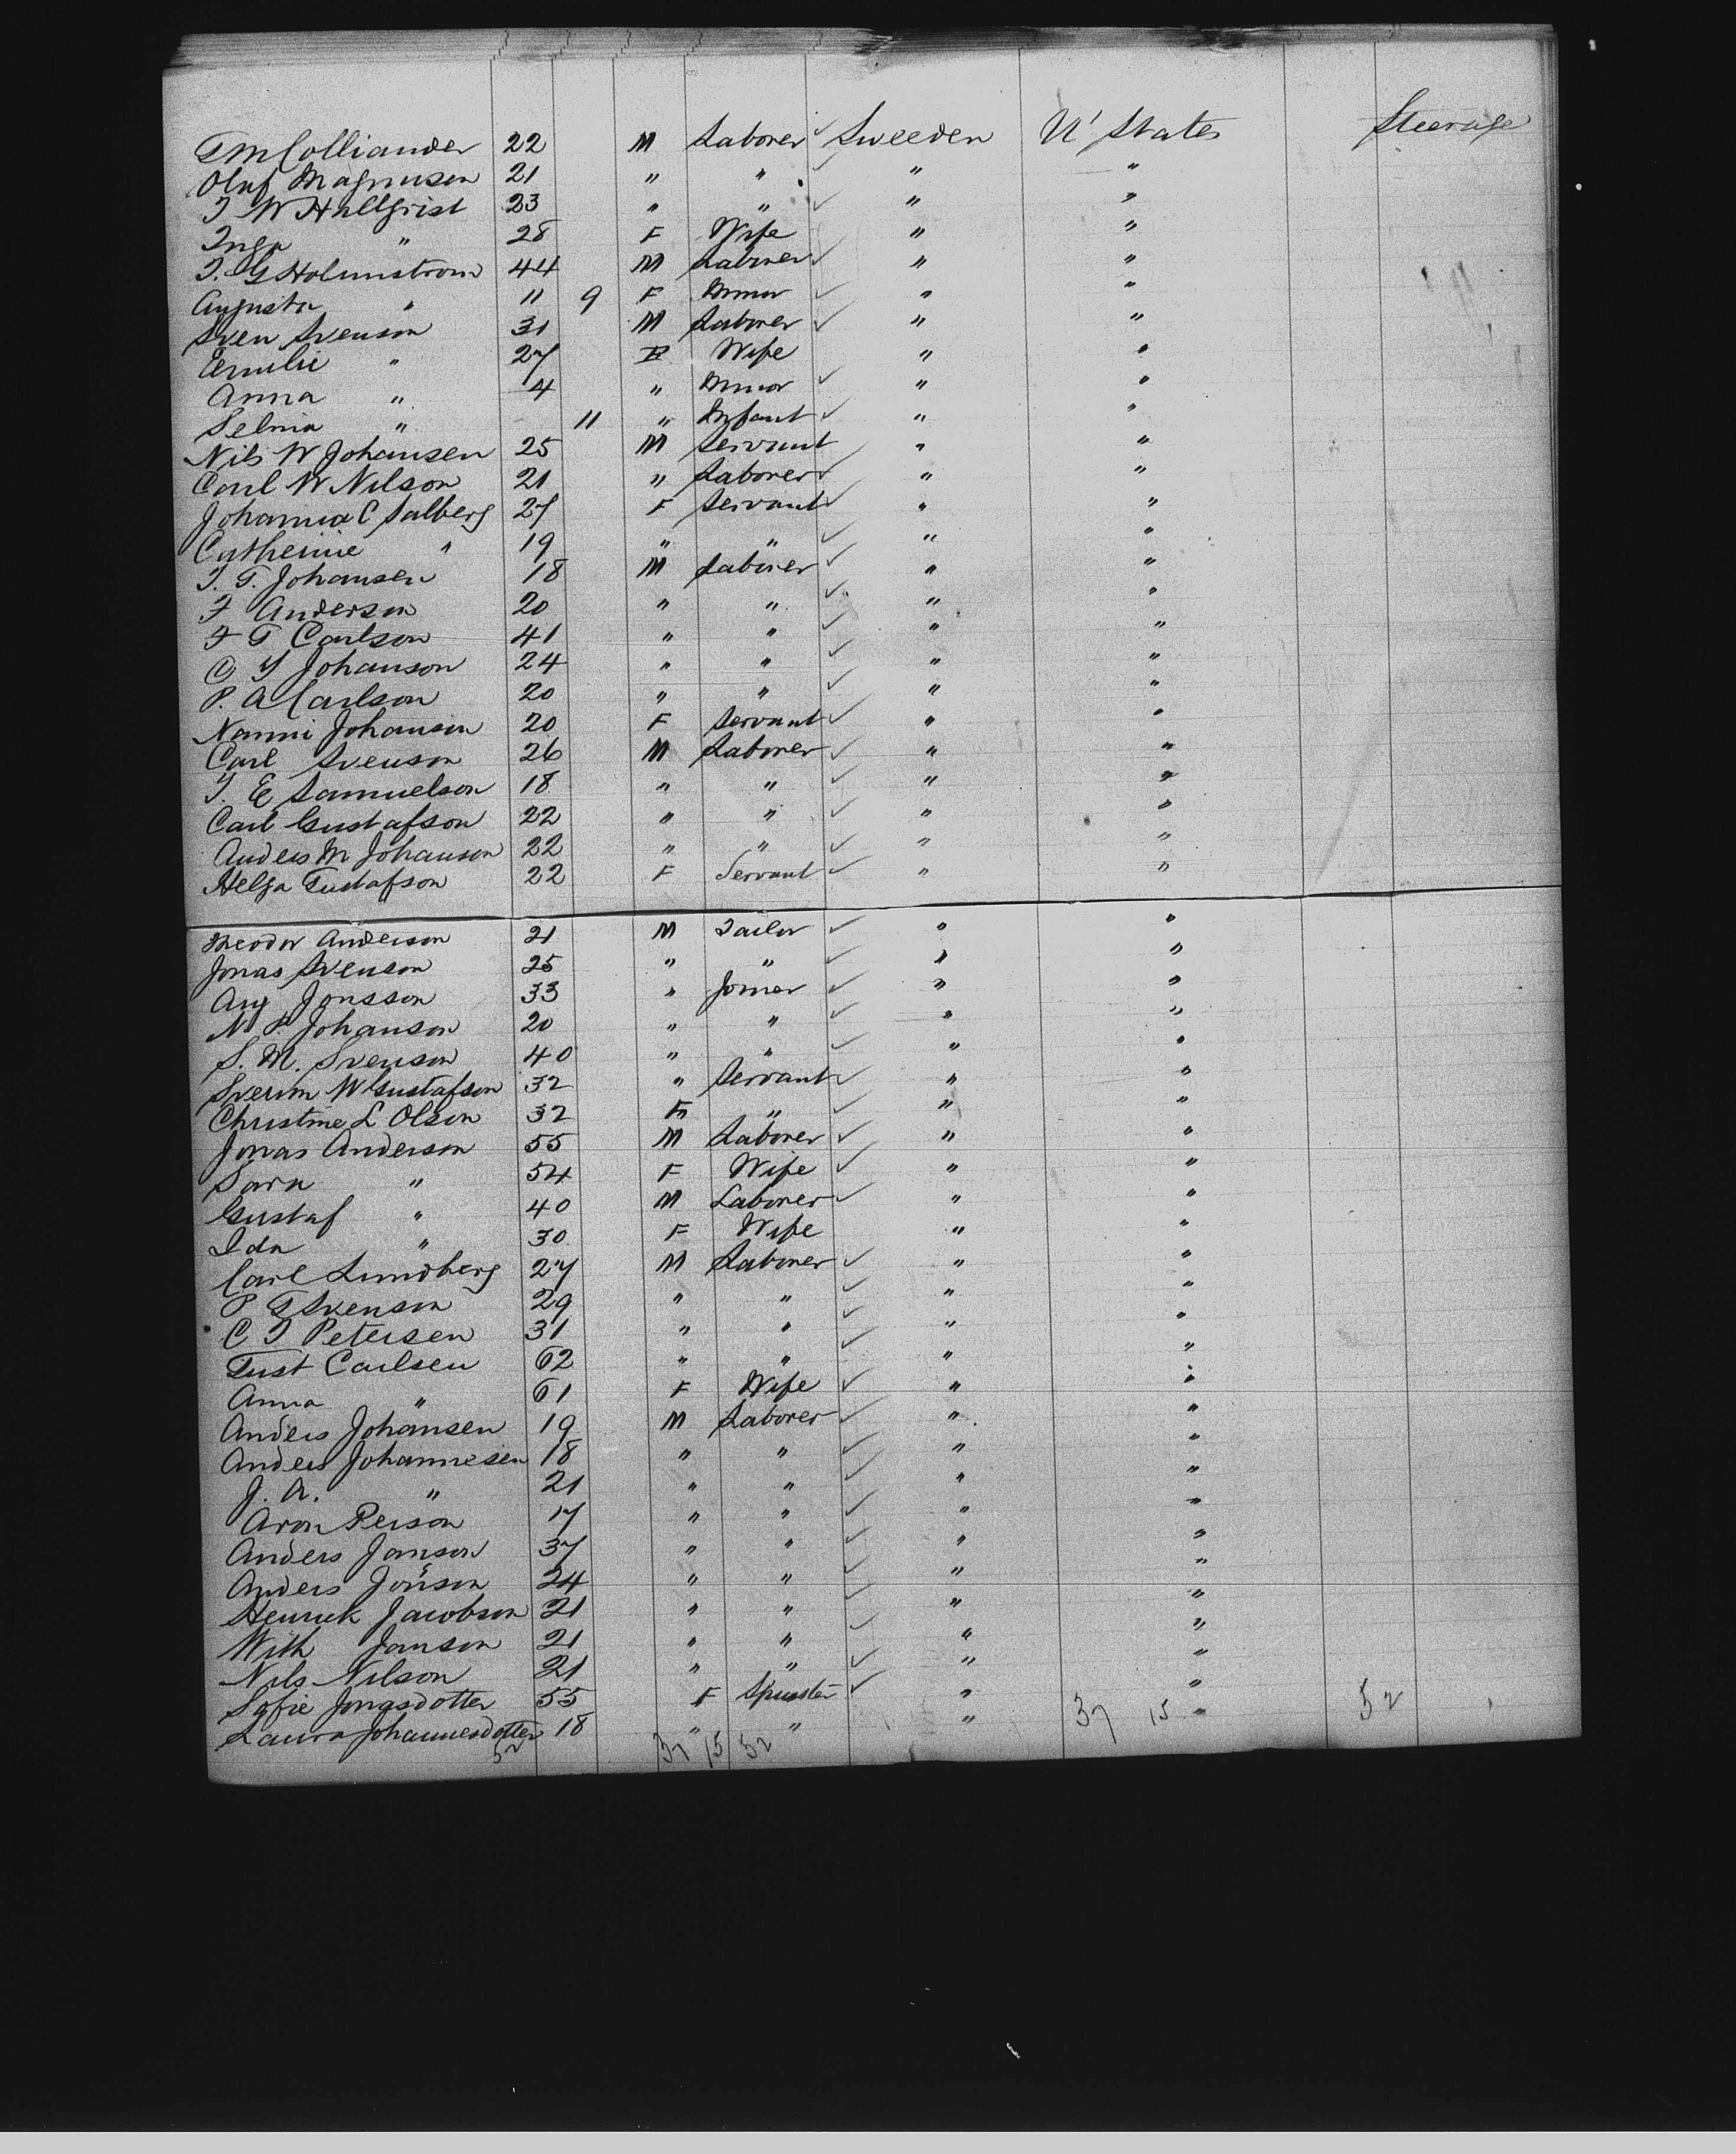 G M Colliander 22 M Laborer ✓ Sweeden U' States Steerage
Oluf Magnusen 21 " " ✓ " "
I W Hallgrist 23 " " ✓ " "
Inga " 28 F Wife ✓ " "
I. G Holmstrom 44 M Laborer ✓ " "
Augusta " 11 9 F Minor ✓ " "
Sven Svenson 31 M Laborer ✓ " "
Emilie " 27 F Wife " "
Anna " 4 " Minor ✓ " "
Selma " 11 " Infant ✓ " "
Nils W Johansen 25 M Servant " "
Carl W Nilson 21 " Laborer ✓ " "
Johanna C Salberg 27 F Servant ✓ " "
Catherine " 19 " " ✓ " "
I. G. Johansen 18 M Laborer ✓ " "
F Anderson 20 " " ✓ " "
F G Carlson 41 " " ✓ " "
C Y Johanson 24 " " ✓ " "
P. A Carlson 20 " " ✓ " "
Nanni Johansin 20 F Servant ✓ " "
Carl Svenson 26 M Laborer ✓ " "
I. E Samuelson 18 " " ✓ " "
Carl Gustafson 22 " " ✓ " "
Anders M Johanson 22 " " ✓ " "
Helga Gustafson 22 F Servant ✓ " "
Theodor Anderson 21 M Tailor ✓ " "
Jonas Svenson 25 " " ✓ " "
Aug Jonsson 33 " Joiner ✓ " "
N. P. Johanson 20 " " ✓ " "
S. M. Svenson 40 " " ✓ " "
W Gustafson 32 " Servant ✓ " "
Christine L Olson 32 F " ✓ " "
Jonas Anderson 55 M Laborer ✓ " "
Sara " 54 F Wife ✓ " "
Gustaf " 40 M Laborer ✓ " "
Ida " 30 F Wife " "
Carl Lundberg 27 M Laborer ✓ " "
P G Svenson 29 " " ✓ " "
C I Petersen 31 " " ✓ " "
Gust Carlsen 62 " " ✓ " "
Anna " 61 F Wife ✓ " "
Anders Johansen 19 M Laborer ✓ " "
Anders Johannesen 18 " " ✓ " "
J. A. " 21 " " ✓ " "
Aron Person 17 " " ✓ " "
Anders Janson 37 " " ✓ " "
Anders Jonson 24 " " ✓ " "
Henrick Jacobson 21 " " ✓ " "
With Janson 21 " " ✓ " "
Nils Nilson 21 " " ✓ " "
Sofie Jonasdotter 55 F Spinster ✓ " "
Laura Johannesdotter 18 " " " 37 15 " 52
52 37 15 52